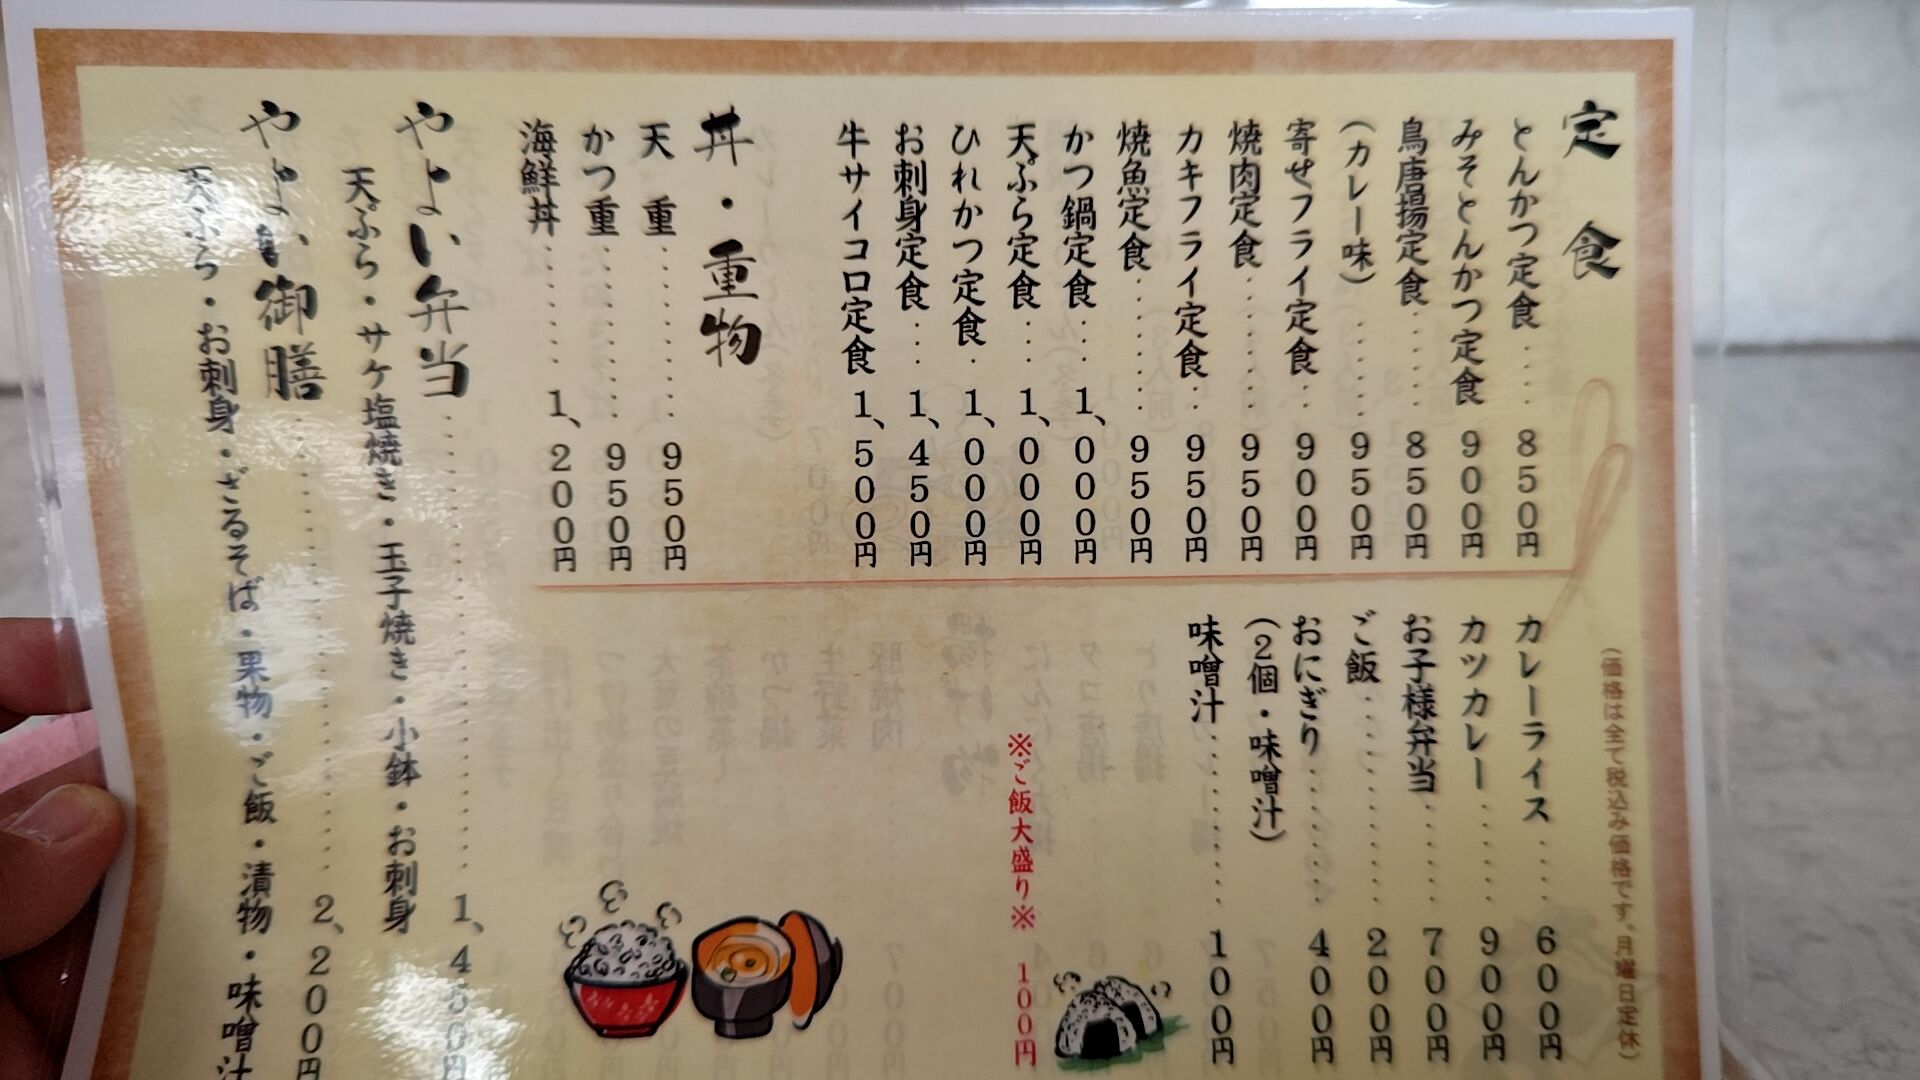 定食
とんかつ定食・・・・850円
みそとんかつ定食 900円
鳥唐揚定食・・・・・850円
(カレー味)・・・・・950円
寄せフライ定食・・900円
焼肉定食・・・・・・950円
カキフライ定食・・950円
焼魚定食・・・・・・950円
かつ鍋定食・・・1、000円
天ぷら定食・・・1、000円
ひれかつ定食・1、000円
お刺身定食・・・1、450円
牛サイコロ定食 1、500円
丼・重物
天重・・・・・・・・950円
かつ重・・・・・・・950円
海鮮丼・・・・・・1、200円
(価格は全て税込み価格です。月曜日定休)
カレーライス・・・・600円
カツカレー・・・・・900円
お子様弁当・・・・・700円
ご飯・・・・・・・・・200円
おにぎり・・・・・・・400円
(2個・味噌汁)
味噌汁・・・・・・・・100円
※ご飯大盛り※ 100円
やよい弁当・・・・・・・・・・・・・・・・・・1、450円
天ぷら・サケ塩焼き・玉子焼き・小鉢・お刺身
やよい御膳・・・・・・・・・・・・・・・・・・2、200円
天ぷら・お刺身・ざるそば・果物・ご飯・漬物・味噌汁